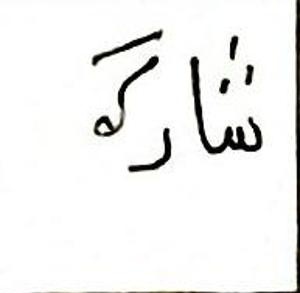 شاركه